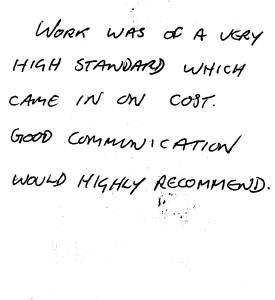 WORK WAS OF A VERY
HIGH STANDARD WHICH
CAME IN ON COST.
GOOD COMMUNICATION
WOULD HIGHLY RECOMMEND.